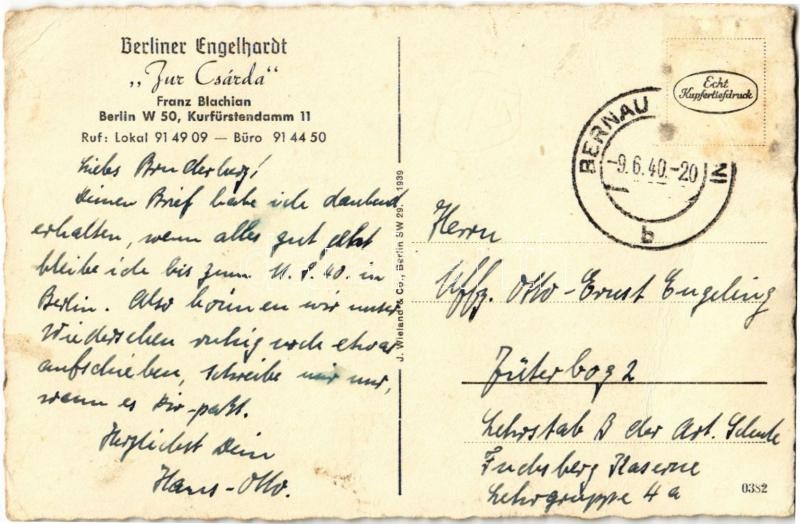 Berliner Engelhardt
„Zur Csárda“
Franz Blachian
Berlin W 50, Kurfürstendamm 11
Ruf: Lokal 91 49 09 — Büro 91 44 50
Liebes Bruderherz!
Deinen Brief habe ich dankend
erhalten, wenn alles gut geht
bleibe ich bis zum 11. 8. 40. in
Berlin. Also können wir unser
Wiedersehen ruhig noch etwas
aufschieben, schreibe mir nur,
wenn es Dir paßt.
Herzlichst Dein
Hans-Otto.
J. Wieland & Co., Berlin SW 29. 1939
Echt
Kupfertiefdruck
BERNAU
-9.6.40.-20
IN
b
Herrn
Uffz. Otto-Ernst Engeling
Jüterbog 2
Lehrstab B der Art. Schule
Fuchsberg Kaserne
Lehrgruppe 4a
0382